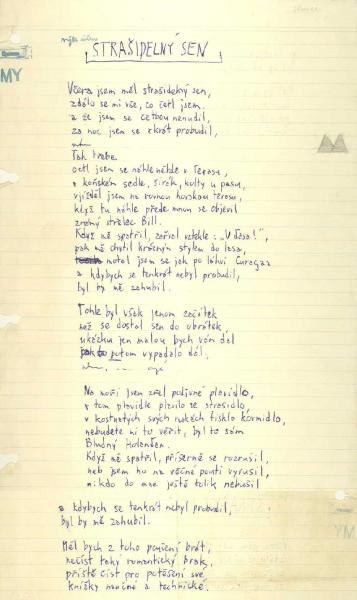 STRAŠIDELNÝ SEN
MY
Včera jsem měl strašidelný sen,
zdálo se mi vše, co četl jsem.
a že jsem se četbou nenudil,
za noc jsem se zkrát probudil,
Tak třeba
octl jsem se náhle někde v Texasu,
v koňském sedle, širák, kolty u pasu,
vjížděl jsem na rovnou horskou terasu,
když tu náhle přede mnou se objevil
zrádný střelec Bill.
Když mě spatřil, zařval vztekle: „V lasa!",
pak mě chytil krásným stylem do lasa,
motal jsem se jak po láhvi Curaçaa
a kdybych se tenkrát nebyl probudil,
byl by mě zahubil.
Tohle byl však jenom začátek
než se dostal sen do obrátek,
ukázku jen malou bych vám dal
jak to potom vypadalo dál.
Na moři jsem zřel podivné plavidlo,
v tom plavidle plavilo se strašidlo,
v kostnatých svých rukách tisklo kormidlo,
nebudete mi to věřit, byl to sám
Bludný Holanďan.
Když mě spatřil, příšerně se rozrušil,
neb jsem ho na věčné pouti vyrušil,
nikdo do mne ještě tolik nebušil
a kdybych se tenkrát nebyl probudil,
byl by mě zahubil.
Měl bych z toho ponaučení brát,
nečíst tahý romantický brak,
příště číst pro potěšení své
knížky naučné a technické.
MY